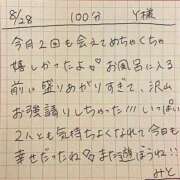 8/28 100分 Y様
今月2回も会えてめちゃくちゃ
嬉しかったよ♡お風呂に入る
前に盛りあがりすぎて、沢山
お強請りしちゃった!!!いっぱい
2人とも気持ちよくなれて今日も
幸せだったね また遊ぼうね!!
みと